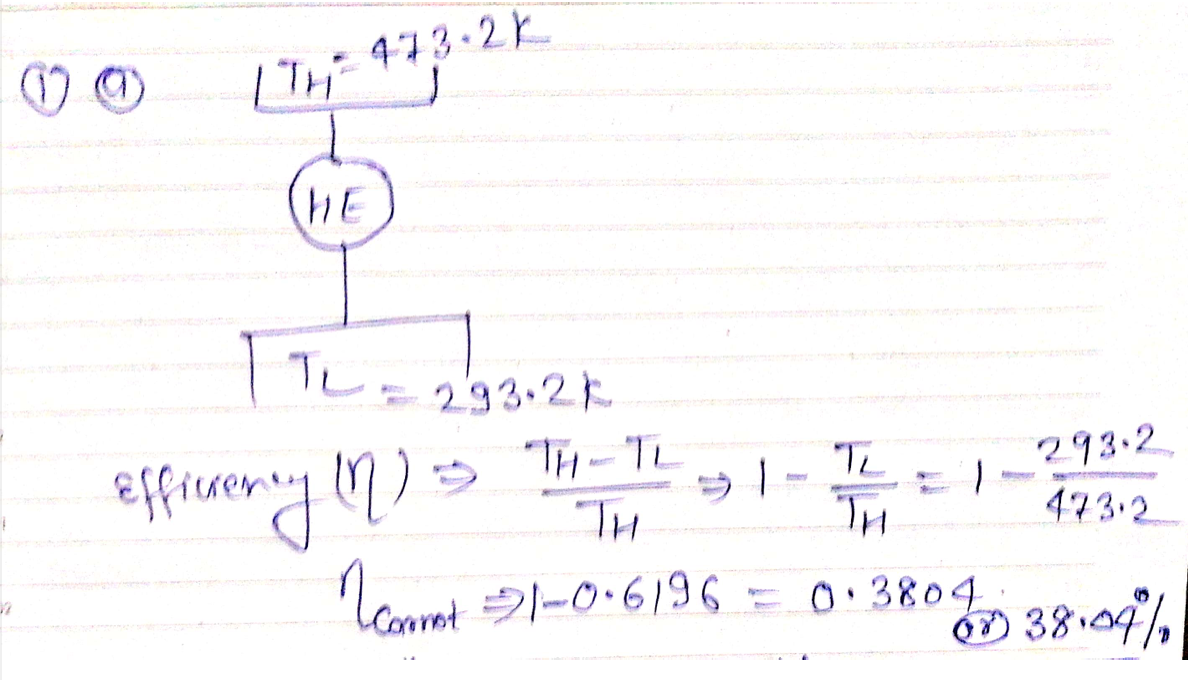 ① ⓐ TH = 473.2K
HE
TL = 293.2K
Efficiency (η) ⇒ TH - TL / TH ⇒ 1 - TL / TH = 1 - 293.2 / 473.2
ηCarnot ⇒ 1 - 0.6196 = 0.3804 (or) 38.04%